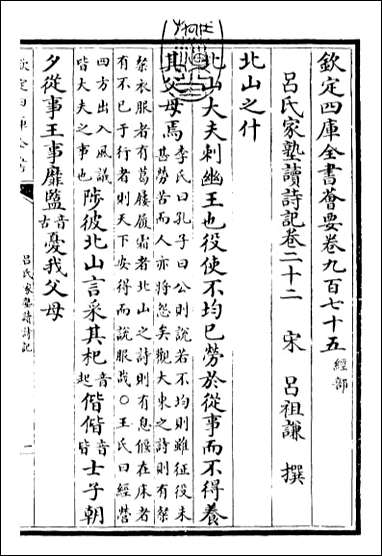 欽定四庫全書薈要卷九百七十五 經部
呂氏家塾讀詩記卷二十二 宋 呂祖謙 撰
北山之什
北山大夫刺幽王也役使不均已勞於從事而不得養
其父母焉 李氏曰孔子曰公則說若不均則雖征役未
甚勞苦而人亦將怨矣觀大東之詩則有粲
粲衣服者有葛屨履霜者北山之詩則有息偃在床者
有不已于行者則天下安得而說服哉○王氏曰經營
四方出入風議
皆大夫之事也 陟彼北山言采其杞 音起 偕偕 音皆 士子朝
夕從事王事靡盬 音古 憂我父母
欽定四庫全書
呂氏家塾讀詩記